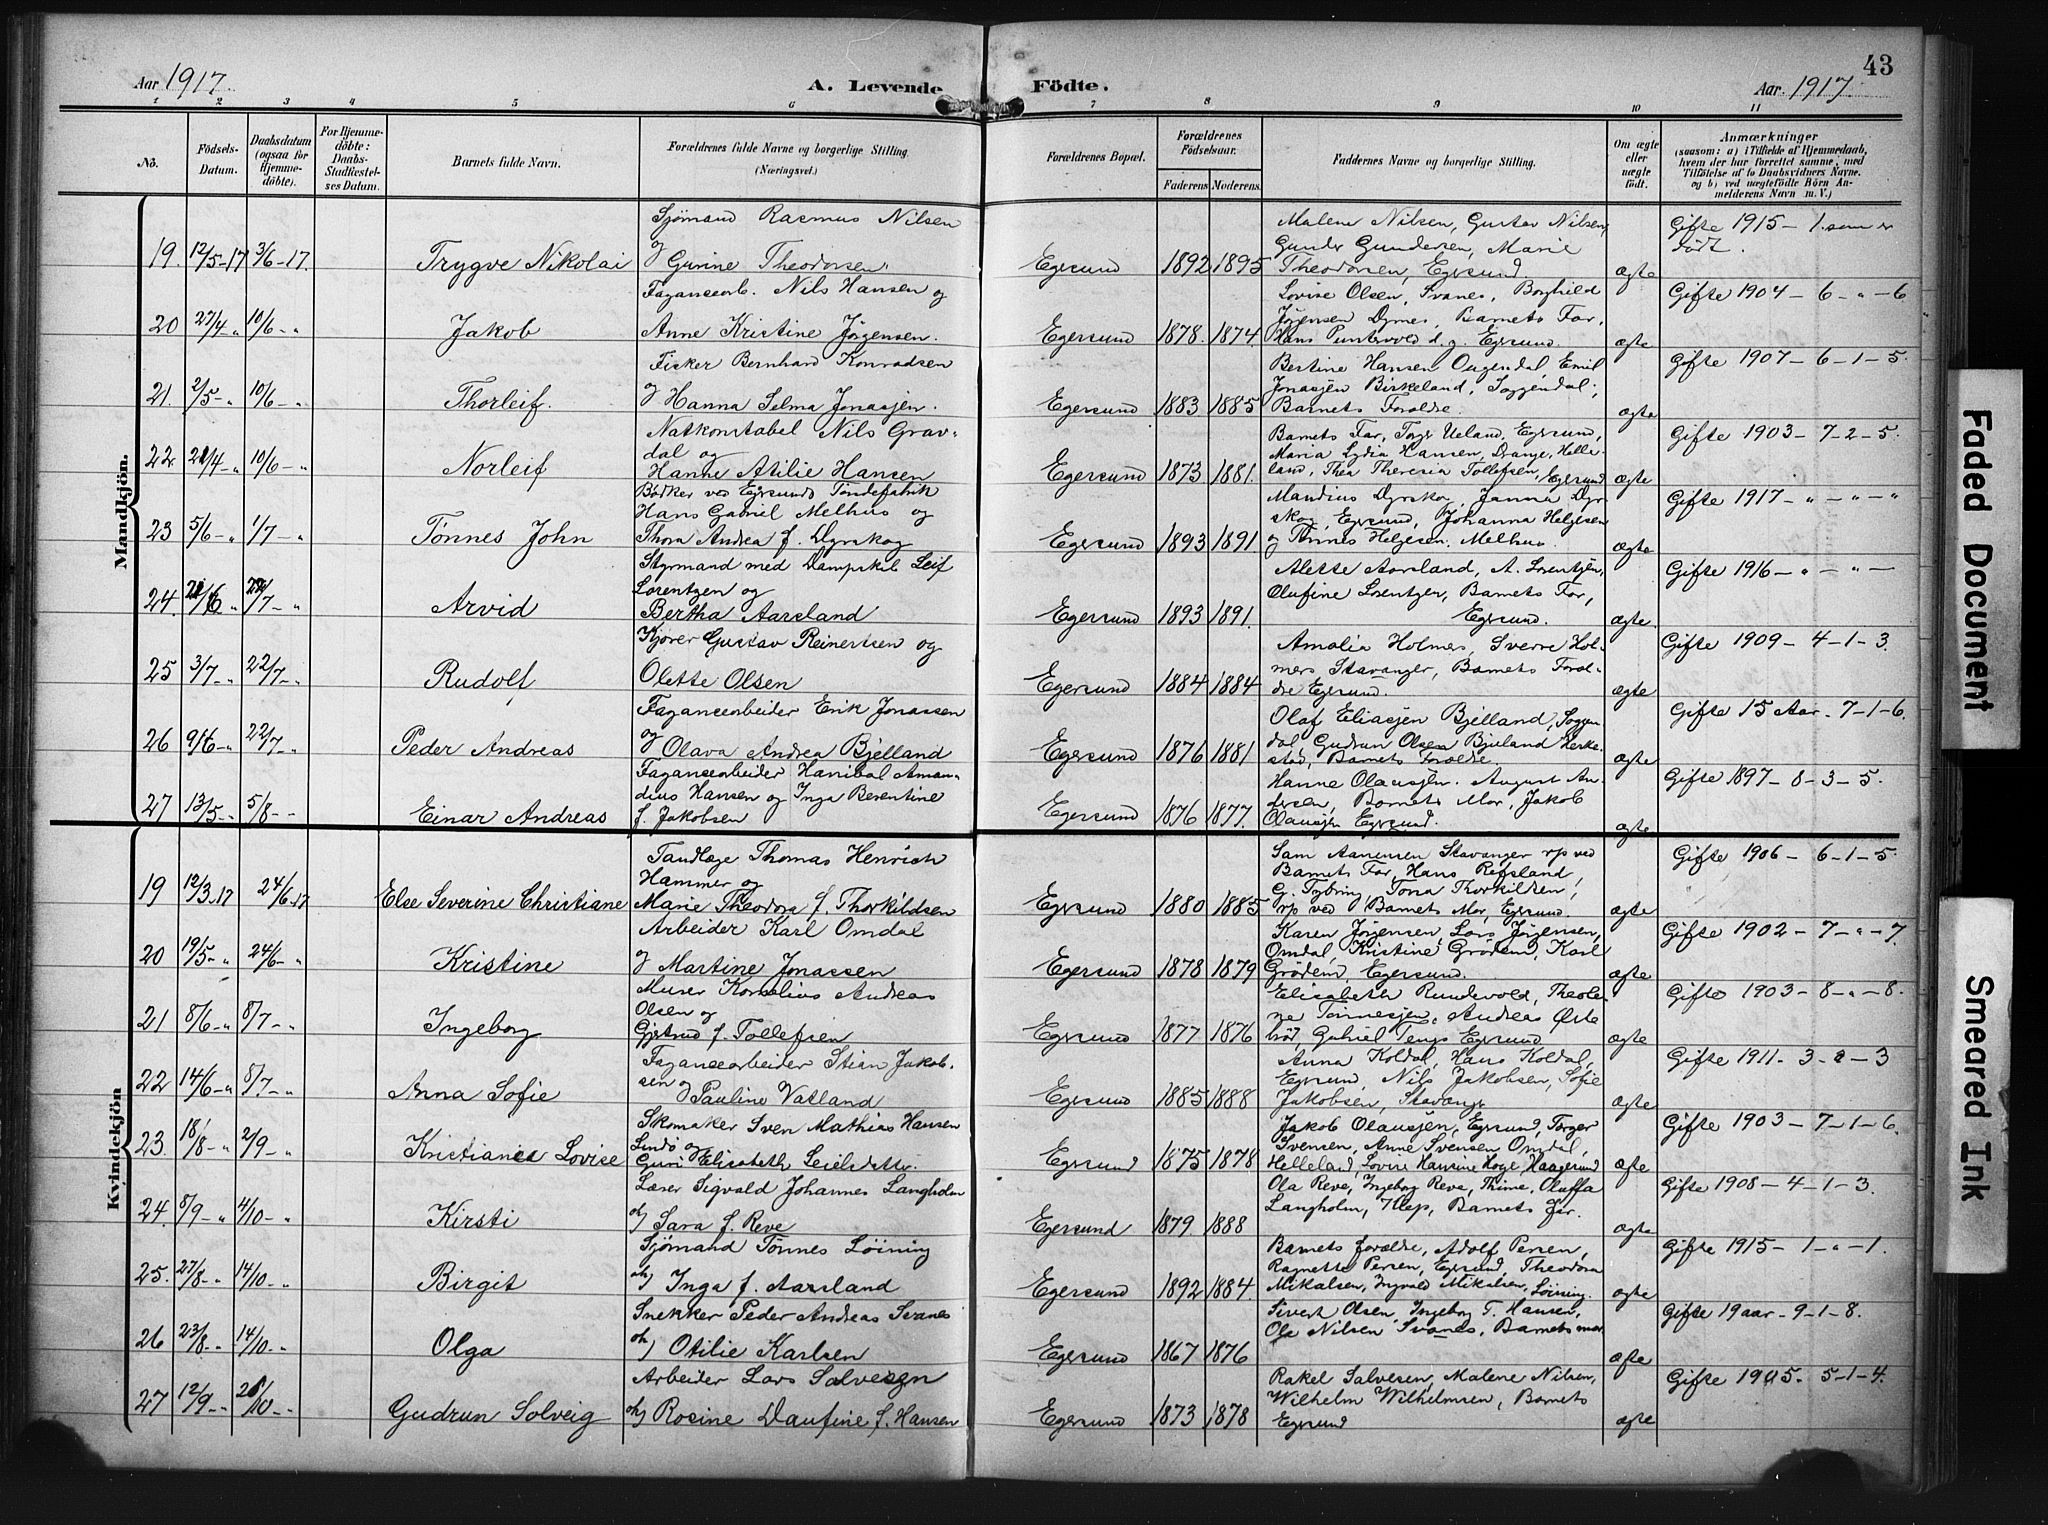 Aar 1917.
A. Levende Födte.
Aar 1917.
43
1 2 3 4 5 6 7 8 9 10 11
No.
Födsels-Datum.
Daabsdatum (ogsaa for Hjemmedöbte).
For Hjemmedöbte: Daabs-Stadfæstelses Datum.
Barnets fulde Navn.
Forældrenes fulde Navne og borgerlige Stilling (Næringsvei.)
Forældrenes Bopæl.
Forældrenes Födselsaar.
Faderens Moderens
Faddernes Navne og borgerlige Stilling.
Om ægte eller uægte födt.
Anmærkninger
(saasom: a) i Tilfælde af Hjemmedaab, hvem der har forrettet samme, med Tilföielse af to Daabsvidners Navne, og b) ved uægtefödte Börn Anmelderens Navn m. V.)
Mandkjön.
19. 12/5-17 3/6-17. Trygve Nikolai
Sjømand Rasmus Nilsen
og Gurine Theodorsen.
Egersund 1892 1895
Malene Nilsen, Gustav Nilsen,
Gunder Gundersen, Marie
Theodorsen, Egersund.
ægte
Gifte 1915 - 1. som er
dødt.
20 27/4-" 10/6-" Jakob
Faganсearb. Nils Hansen og
Anne Kristine Jørgensen.
Egersund 1878. 1874
Lovise Olsen, Svanes, Borghild
Jørgensen Dymes, Barnets Far,
Hans Puntervold d.y. Egersund.
ægte
Gifte 1904 - 6 - " - 6
21. 2/5-" 10/6-" Thorleif.
Fisker Bernhard Konradsen
og Hanna Selma Jonasjen.
Egersund 1883 1885
Bertine Hansen Ougendal, Emil
Jonasjen Birkeland, Soggendal,
Barnets Forældre.
ægte
Gifte 1907 - 6-1-5.
22. 21/4-" 10/6-" Norleif
Natkonstabel Nils Grav-
dal og
Hanne Atilie Hansen
Egersund 1873 1881.
Barnets Far, Torger Ueland, Egersund,
Maria Lydia Hansen, Drange, Helle-
land, Thea Theresia Tollefsen, Egersund
ægte
Gifte 1903 - 7-2-5.
23 5/6-" 1/7-" Tønnes John
Bødker ved Egersunds Tøndefabrik
Hans Gabriel Melhus og
Thora Andrea f. Dyrskog
Egersund 1893 1891
Mandius Dyrskog, Janna Dyr-
skog, Egersund, Johanna Helgesen
og Tønnes Helgesen. Melhus.
ægte
Gifte 1917 - " - " - "
24. 21/6 " 22/7-" Arvid
Styrmand med Dampskib Leif
Lorentzen og
Bertha Aarsland
Egersund 1893 1891.
Alette Aarsland, A. Lorentzen,
Olufine Lorentzen, Barnets Far,
Egersund.
ægte.
Gifte 1916 - " - " -
25 3/7-" 22/7-" Rudolf
Kjører Gustav Reinertsen og
Olette Olsen
Egersund 1884 1884
Amalia Holmers, Sverre Hol-
mers Stavanger, Barnets Foræl-
dre Egersund.
ægte
Gifte 1909 - 4-1-3.
26 9/6-" 22/7-" Peder Andreas
Fagancearbeider Erik Jonassen
og Olava Andrea Bjelland
Egersund 1876 1881
Olaf Eliasjen Bjelland, Soggen-
dal, Gudrun Olsen Bjuland Herke-
stad, Barnets Forældre.
ægte
Gifte 15 Aar. 7-1-6.
27 13/5-" 5/8-" Einar Andreas
Fagancearbeider Hanibal Aman-
dius Hansen og Inga Berentine
f. Jakobsen
Egersund 1876 1877.
Hanne Olausjen. August An-
dersen, Barnets Mor, Jakob
Olausjen Egersund.
ægte
Gifte 1897 - 8-3-5.
Kvindekjön
19 12/3.17 24/6.17 Else Severine Christiane
Tandlæge Thomas Henrich
Hammer og
Marie Theodora f. Thorkildsen
Egersund 1880 1885
Sam Aanensen Stavanger rp ved
Barnets Far, Hans Refsland,
G. Tybring, Tona Thorkildsen,
rp ved Barnets Mor, Egersund.
ægte
Gifte 1906 - 6-1-5.
20 19/5-" 24/6-" Kristine
Arbeider Karl Omdal
og Martine Jonassen
Egersund 1878 1879
Karen Jørgensen, Lars Jørgensen,
Omdal, Kristine Grødem, Karl
Grødem, Egersund.
ægte
Gifte 1902 - 7-"-7.
21 8/6-" 8/7-" Ingeborg
Murer Kornelius Andreas
Olsen og
Gjertrud f. Tollefsen
Egersund 1877 1876
Elisabeth Rundevold, Theole-
ne Tønnesjen, Andrea Øste
brød, Gabriel Tengs Egersund
ægte
Gifte 1903 - 8-"-8.
22 14/6-" 8/7-" Anna Sofie
Fagancearbeider Stian Jakob-
sen og
Pauline Vatland
Egersund 1885 1888
Anna Koldal, Hans Koldal,
Egersund, Nils Jakobsen, Sofie
Jakobsen, Stavanger
ægte
Gifte 1911. 3-"-3
23. 18/8-" 2/9-" Kristiane Lovise
Skomaker Sven Mathias Hansen
Lindø og
Guri Elisabeth Seielsdatter.
Egersund 1875 1878
Jakob Olausjen, Egersund, Torger
Svensen, Anne Svensen Omdal,
Helleland, Lovise Hansine Hoge, Haagesund
ægte
Gifte 1903 - 7-1-6.
24. 8/9-" 4/10-" Kirsti
Lærer Sigvald Johannes Langholm
oh Sara f. Reve
Egersund 1879 1888
Ola Reve, Ingeborg Reve, Thime, Oluffa
Langholm, Klep, Barnets far.
ægte
Gifte 1908 - 4-1-3.
25. 27/8-" 14/10-" Birgit
Sjømand Tønnes Løining
oh Inga f. Aarsland
Egersund 1892 1884.
Barnets forældre, Adolf Persen,
Ragnette Persen, Egersund, Theodora
Mikalsen, Ingvald Mikalsen, Løining.
ægte
Gifte 1915 - 1-"-1.
26 23/8-" 14/10-" Olga
Snekker Peder Andreas Svanes
oh Otilie Karlsen
Egersund 1867 1876
Sivert Olsen, Ingeborg T. Hansen,
Ole Nilsen Svanes, Barnets mor
ægte
Gifte 19 aar - 9-1-8.
27 12/9-" 21/10-" Gudrun Solveig
Arbeider Lars Salvesen
oh Rosine Daufine f. Hansen
Egersund 1873 1878
Rakel Salvesen, Malene Nilsen,
Wilhelm Wilhelmsen, Barnets
Egersund
ægte
Gifte 1905. 5-1-4.
Faded Document
Smeared Ink